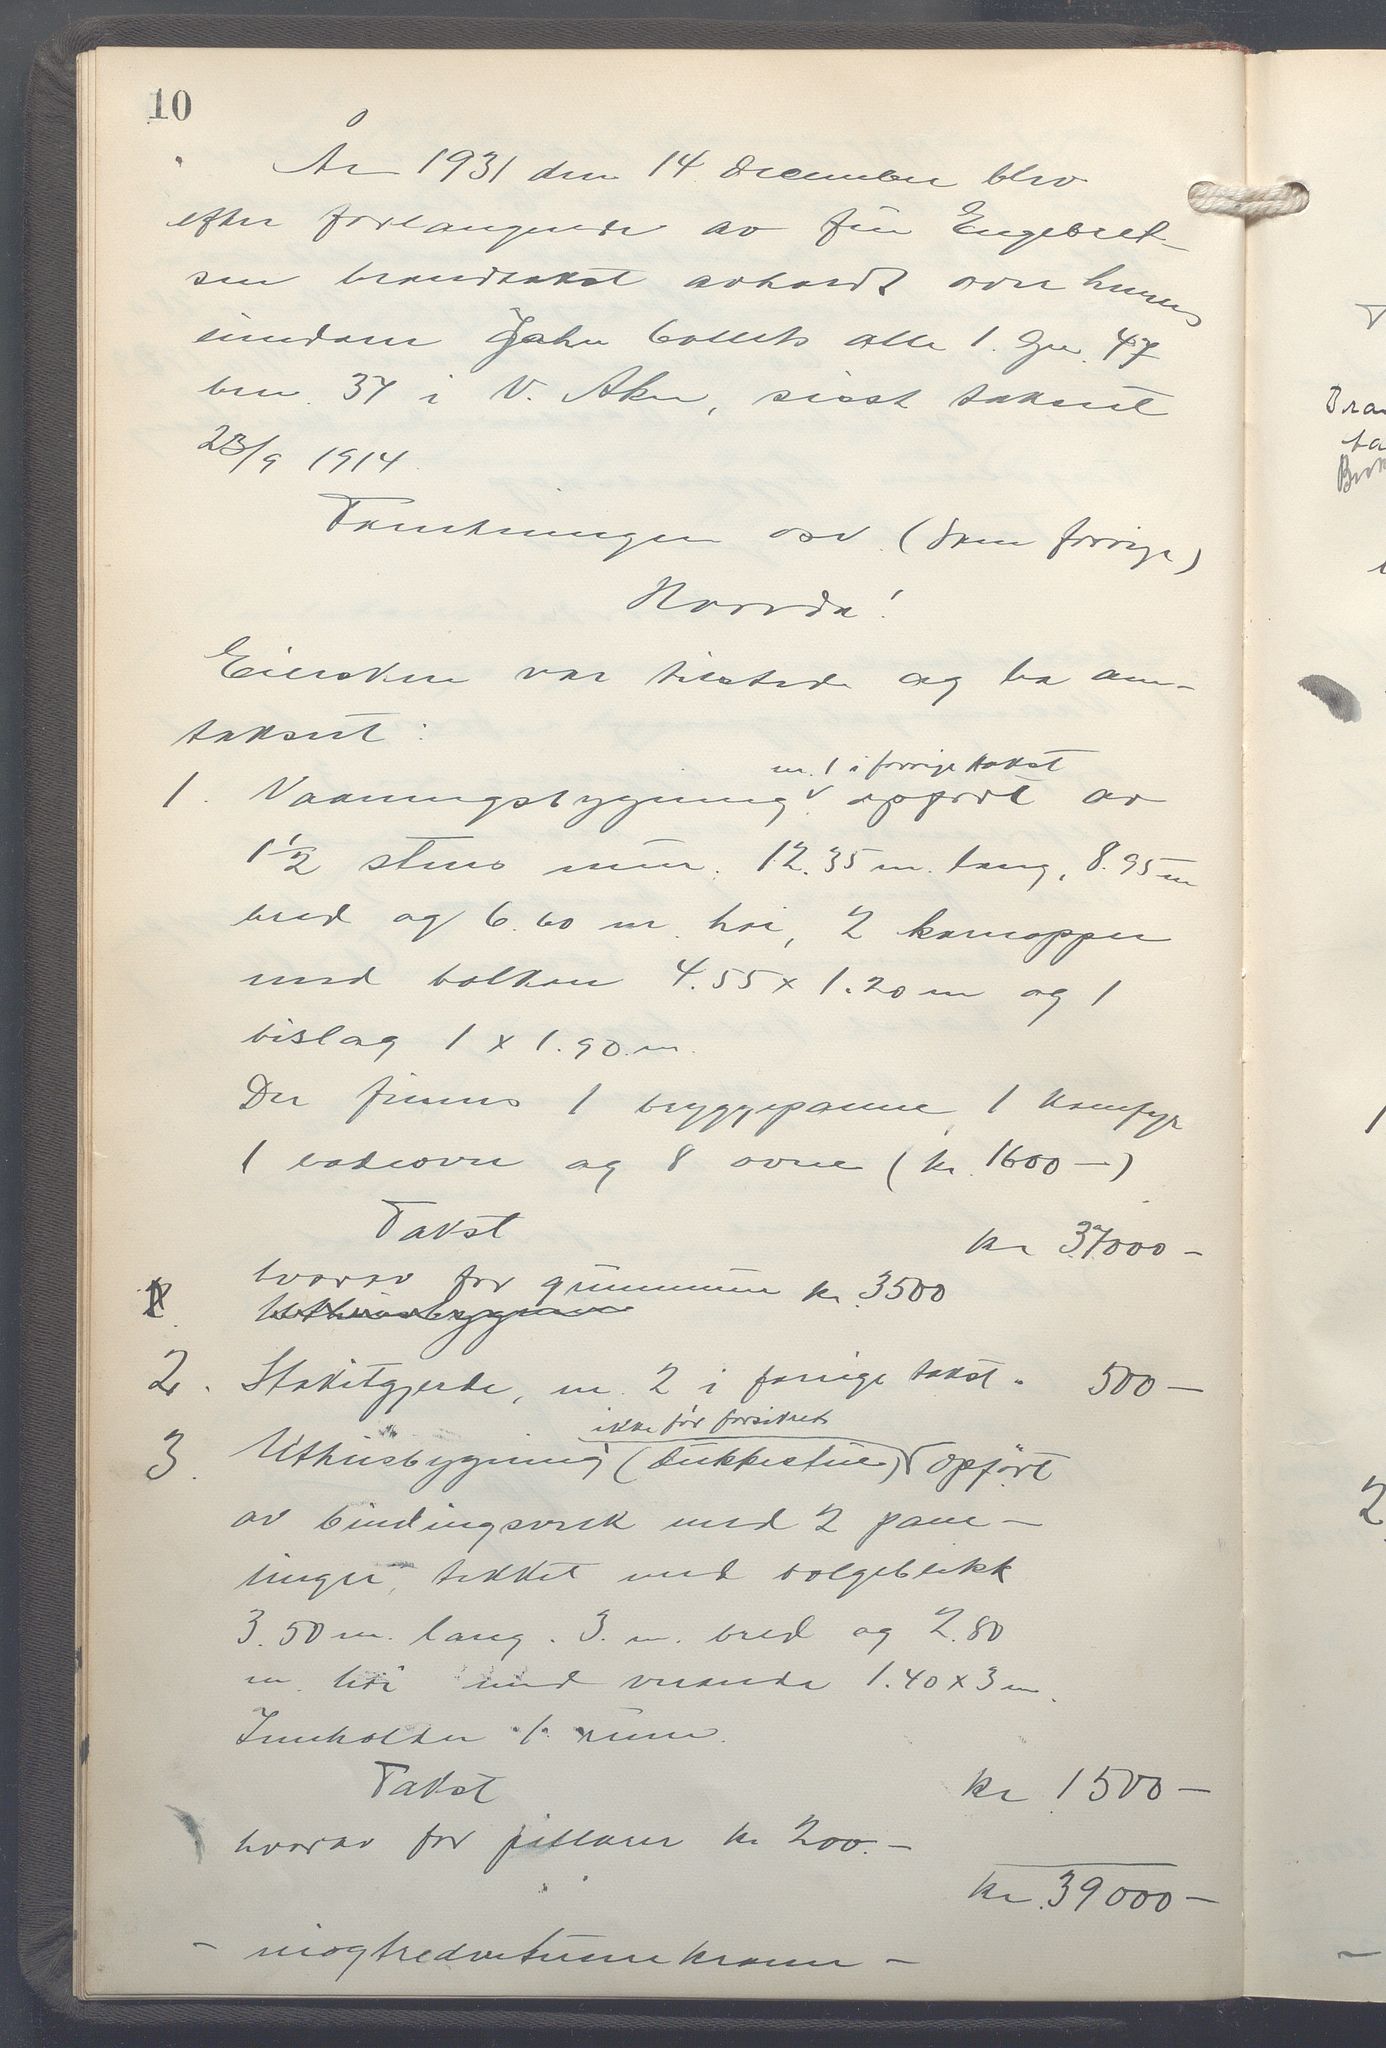 10
År 1931 den 14 december blev
efter forlangende av fru Engebret-
sen brandtakst avholdt over hennes
eiendom John Colletts alle 1. Gnr. 47
bnr. 37 i V. Aker, sisst taksert
23/9 1914.
Forretningen osv. (som forrige)
Hvorda!
Eiersken var tilstede og ba om-
taksert:
1. Vaaningsbygning nr. 1 i forrige takst opført av
1 1/2 stens mur. 12.35 m. lang, 8.95 m
bred og 6.60 m. høi, 2 karnapper
med balkon 4.55 x 1.20 m og 1
bislag 1 x 1.90 m.
Der finnes 1 bryggepanne, 1 komfyr
1 badeovn og 8 ovner (kr. 1600 —)
Takst kr 37000 —
hvorav for grunnmur kr. 3500
Uthusbygning
2. Stakitgjerde, nr. 2 i forrige takst. 500 —
3. Uthusbygning (dukkestue) ikke før forsikret opført
av bindingsverk med 2 pane-
linger, tekket med bølgeblikk
3.50 m. lang. 3. m. bred og 2.80
m. høi med veranda 1.40 x 3 m.
Inneholder 1 rum.
Takst kr. 1500 —
hvorav for pillarer kr 200. —
kr. 39000 —
— niogtredvetusen kroner —
Bra
ta
1
2